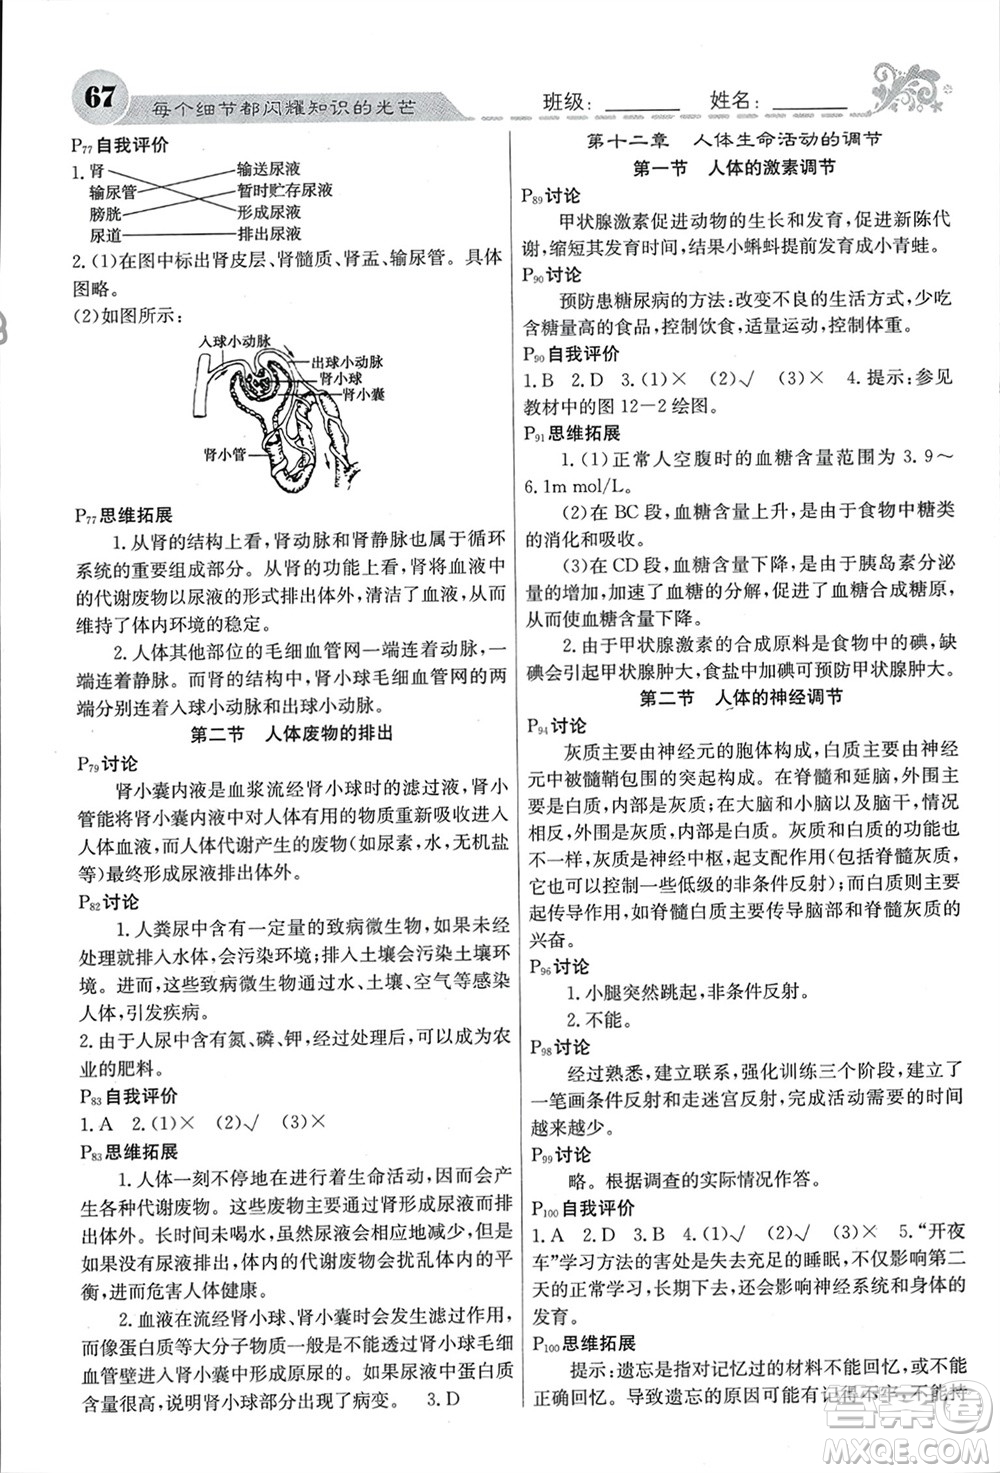 67
每个细节都闪耀知识的光芒
班级：
姓名：
P77自我评价
1. 肾 输送尿液
输尿管 暂时贮存尿液
膀胱 形成尿液
尿道 排出尿液
2. (1)在图中标出肾皮层、肾髓质、肾盂、输尿管。具体
图略。
(2)如图所示:
入球小动脉
出球小动脉
肾小球
肾小囊
肾小管
P77思维拓展
1. 从肾的结构上看,肾动脉和肾静脉属于循环
系统的重要组成部分。从肾的功能上看,肾将血液中
的代谢废物以尿液的形式排出体外,清洁了血液,从而
维持了体内环境的稳定。
2. 人体其他部位的毛细血管网一端连着动脉,一
端连着静脉。而肾的肾小球毛细血管网的两
端分别连着入球小动脉和出球小动脉。
第二节　人体废物的排出
P79讨论
肾小囊内液是血浆流经肾小球时的滤过液,肾小
管能将肾小囊内液中对人体有用的物质重新吸收进入
人体血液,而人体代谢产生的废物(如尿素,水,无机盐
等)最终形成尿液排出体外。
P82讨论
1. 人粪尿中含有一定量的致病微生物,如果未经
处理就排入水体,会污染环境;排入土壤会污染土壤环
境。而且,这些致病微生物还会通过水、土壤、空气等感染
人体,引发疾病。
2. 由于人尿中含有氮、磷、钾,经过处理后可以作为农
业的肥料。
P83自我评价
1. A　2.(1)×　(2)√　(3)×
P83思维拓展
1. 人体一刻不停地在进行着生命活动,因而会产
生各种代谢废物。这些废物主要通过肾形成尿液而排
出体外。长时间不喝水,虽然尿液会相应地减少,但如
果没有尿液排出,体内的代谢废物会扰乱体内的平衡,
进而危害人体健康。
2. 血液在流经肾小球、肾小囊时会发生滤过作用,
而像蛋白质等大分子物质一般是不能透过肾小球毛细
血管壁进入肾小囊中形成原尿的。如果尿液中蛋白质含
量高,说明肾小球部分出现了病变。　3. D
第十二章　人体生命活动的调节
第一节　人体的激素调节
P89讨论
甲状腺激素促进动物的生长和发育,促进新陈代
谢,缩短其发育时间,结果小蝌蚪提前发育成小青蛙。
P90讨论
预防患糖尿病的方法:改变不良的生活方式,少吃
含糖量高的食品,控制饮食,适量运动,控制体重。
P90自我评价
1. B　2. D　3.(1)×　(2)√　(3)×　4. 提示:参见
教材中的图 12－2 绘图。
P91思维拓展
1.(1)正常人空腹时的血糖含量范围为 3.9～
6.1m mol/L。
(2)在 BC 段,血糖含量上升,是由于食物中糖类
的消化和吸收。
(3)在 CD 段,血糖含量下降,是由于胰岛素分泌
增加,加速了血糖的分解,促进血糖合成糖原,
从而使血糖含量下降。
2. 由于甲状腺激素的合成原料是食物中的碘,缺
碘会引起甲状腺肿大,食盐中加碘可预防甲状腺肿大。
第二节　人体的神经调节
P94讨论
灰质主要由神经元的胞体构成,白质主要由神经
元中被髓鞘包围的突起构成。在脊髓和延脑,外围是
白质,内部是灰质。在大脑和小脑以及脑干,情况
相反,外围是灰质,内部是白质。灰质和白质的功能也
不一样,灰质是神经中枢,起支配作用(包括脊髓灰质,
它可以控制一些低级的非条件反射);而白质则主要
起传导作用,如脊髓白质主要传导脑和脊髓灰质的
兴奋。
P96讨论
1. 小腿突然跳起,非条件反射。
2. 不能。
P98讨论
经过熟悉、比较熟悉,强化训练三个阶段,建立了
一笔画条件反射和走迷宫反射,完成需要的时间
越来越少。
P99讨论
略。根据调查的实际情况作答。
P100自我评价
1. A　2. D　3. B　4.(1)√　(2)√　(3)√　5.“开夜
车”学习方法的害处是失去充足的睡眠,不仅影响第二
天的正常学习,长期下去,还会影响神经系统和身体的
发育。
P100思维拓展
提示:遗忘是指对记忆过的材料不能回忆,或不能
正确回忆。导致遗忘的原因可能有记得不牢,不能持
答案圈
MXQE.COM